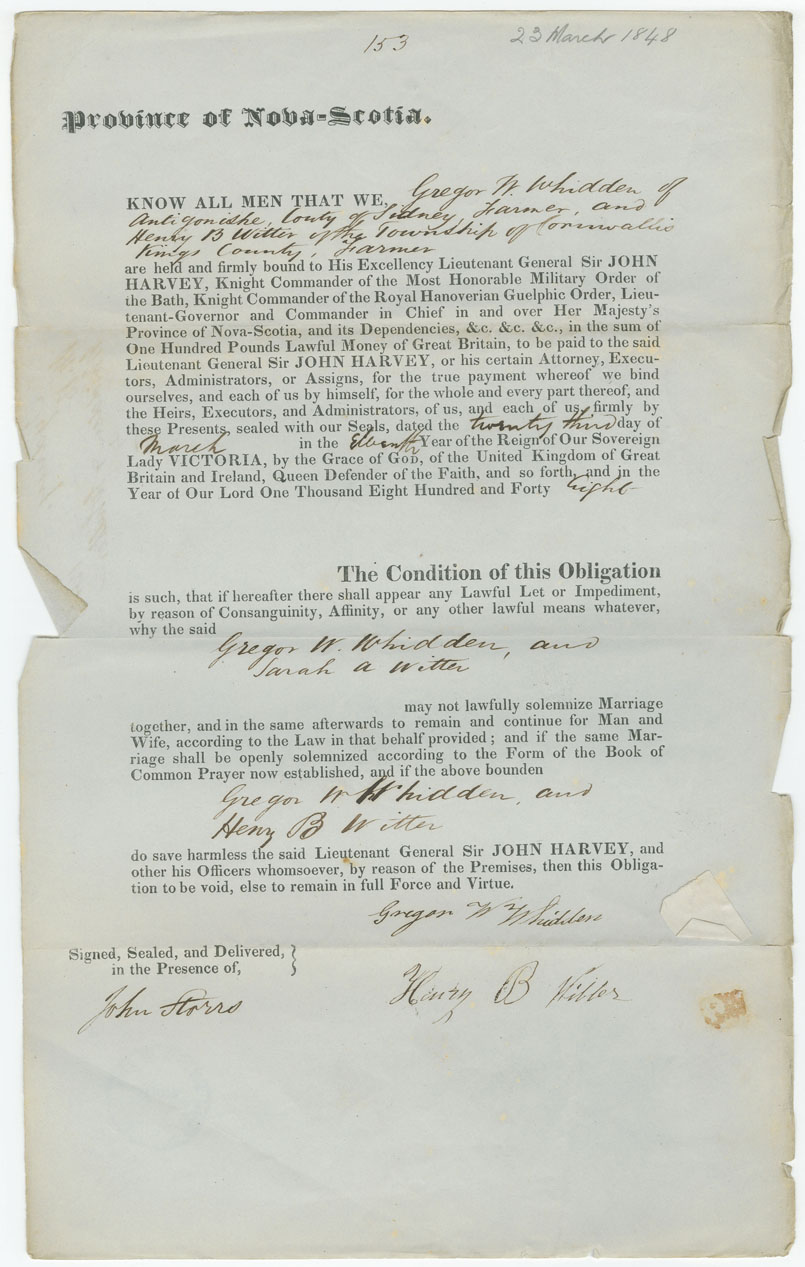 153
23 March 1848
Province of Nova-Scotia.
KNOW ALL MEN THAT WE, Gregor W. Whidden of
Antigonishe, Couty of Sidney, Farmer, and
Henry B Witter of the Township of Cornwallis
Kings County, Farmer
are held and firmly bound to His Excellency Lieutenant General Sir JOHN
HARVEY, Knight Commander of the Most Honorable Military Order of
the Bath, Knight Commander of the Royal Hanoverian Guelphic Order, Lieu-
tenant-Governor and Commander in Chief in and over Her Majesty's
Province of Nova-Scotia, and its Dependencies, &c. &c. &c., in the sum of
One Hundred Pounds Lawful Money of Great Britain, to be paid to the said
Lieutenant General Sir JOHN HARVEY, or his certain Attorney, Execu-
tors, Administrators, or Assigns, for the true payment whereof we bind
ourselves, and each of us by himself, for the whole and every part thereof, and
the Heirs, Executors, and Administrators, of us, and each of us, firmly by
these Presents, sealed with our Seals, dated the twenty third day of
March in the Eleventh Year of the Reign of Our Sovereign
Lady VICTORIA, by the Grace of GOD, of the United Kingdom of Great
Britain and Ireland, Queen Defender of the Faith, and so forth, and in the
Year of Our Lord One Thousand Eight Hundred and Forty Eight
The Condition of this Obligation
is such, that if hereafter there shall appear any Lawful Let or Impediment,
by reason of Consanguinity, Affinity, or any other lawful means whatever,
why the said
Gregor W. Whidden, and
Sarah A Witter
may not lawfully solemnize Marriage
together, and in the same afterwards to remain and continue for Man and
Wife, according to the Law in that behalf provided; and if the same Mar-
riage shall be openly solemnized according to the Form of the Book of
Common Prayer now established, and if the above bounden
Gregor W Whidden, and
Henry B Witter
do save harmless the said Lieutenant General Sir JOHN HARVEY, and
other his Officers whomsoever, by reason of the Premises, then this Obliga-
tion to be void, else to remain in full Force and Virtue.
Gregor W Whidden
Signed, Sealed, and Delivered,
in the Presence of,
Henry B Witter
John Storrs